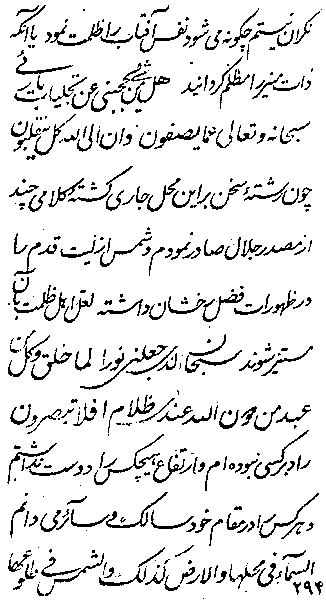 نکران نیستم چکونه می شود نفس آفتاب را ظلمت نمود یا آنکه
ذات منیر را مظلم کردانید هل شیء یحجبنی عن تجلیات بارئی
سبحانه و تعالی عما یصفون و ان الی الله کل ینقلبون
چون رشتهٔ سخن بر این محل جاری کشته کلامی چند
از مصدر جلال صادر نمودم و شمس ازلیت قدم را
در ظهورات فضل رخشان داشته لعل اهل ظلمت بآن
مستنیر شوند سبحان الذی جعلنی نورا لما خلق و کل من
عبد من دون الله عندی ظلام افلا تبصرون
راد بر کسی نبوده ام و ارتفاع هیچکس را دوست نداشتم
و هر کس را در مقام خود سالک و سائر می دانم
السمآء فی محلها و الارض کذلک و الشمس فی طلوعها
۲۹۴